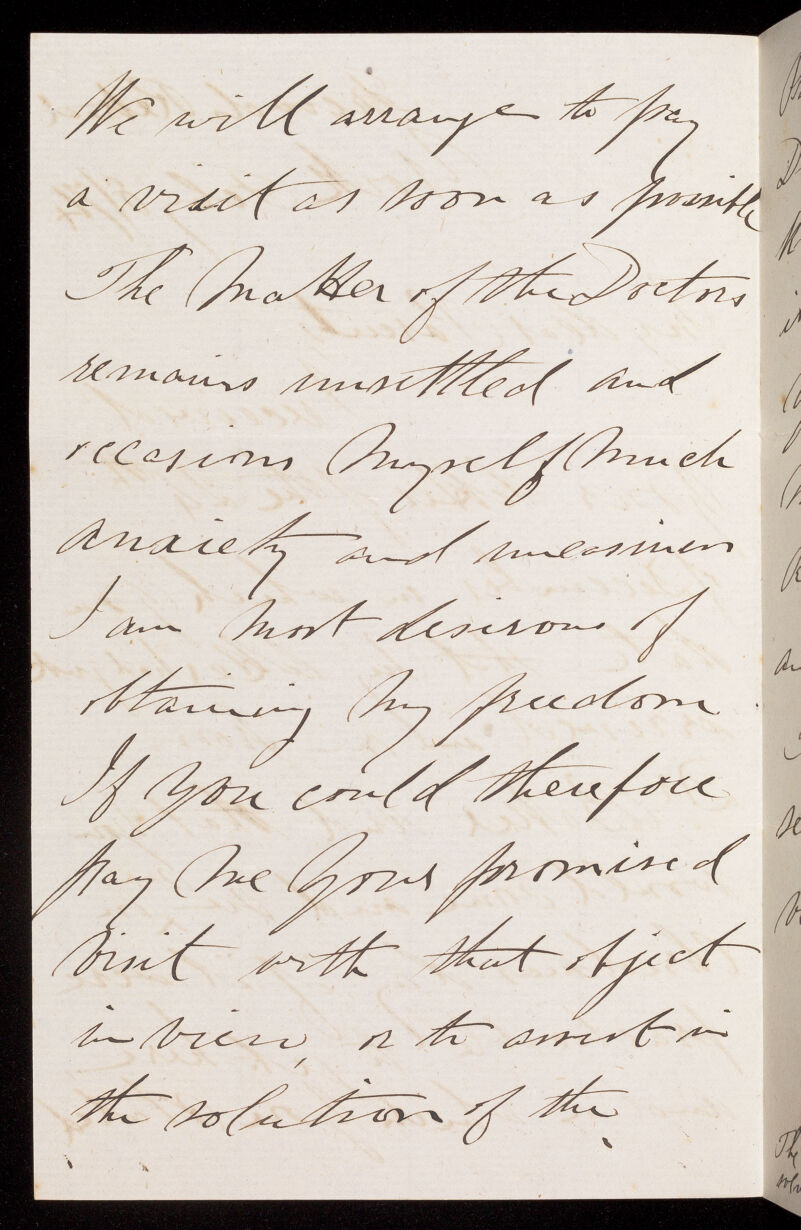 We will arrange to pay
a visit as soon as possible
The Matter of the Doctors
remains unsettled and
occasions Myself Much
anxiety and uneasiness
I am Most desirous of
obtaining My freedom
If you could therefore
pay Me Your promised
Visit with that object
in view, or to assist in
the solution of the